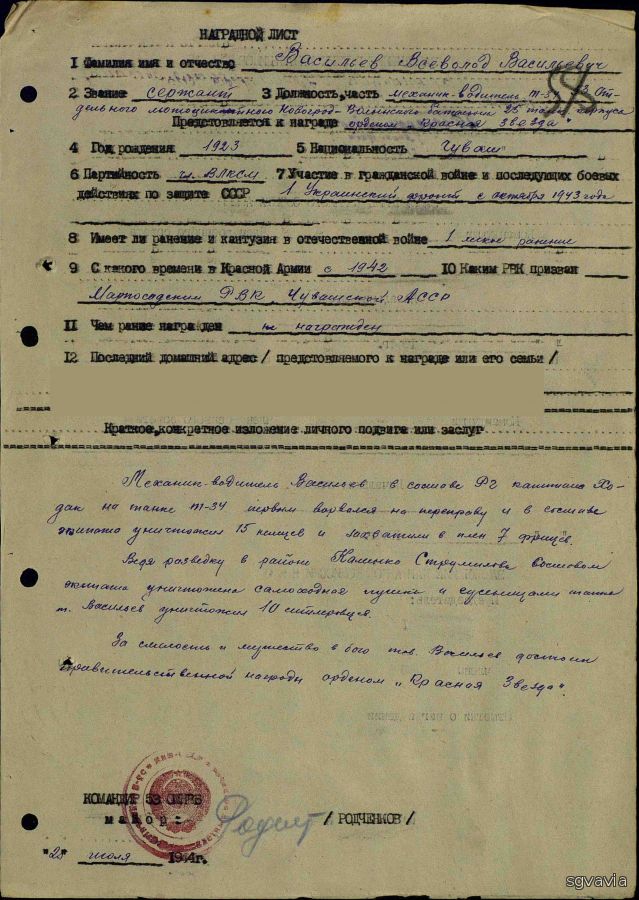 НАГРАДНОЙ ЛИСТ
1 Фамилия имя и отчество Васильев Всеволод Васильевич
2 Звание сержант 3 Должность,часть механик-водитель Т-34 53 От-
дельного мотоциклетного Новоград-Волынского батальона 25 танк. корпуса
Представляется к награде орденом "Красная Звезда"
4 Год рождения 1923 5 Национальность Чуваш
6 Партийность чл. ВЛКСМ 7 Участие в гражданской войне и последующих боевых
действиях по защите СССР 1 Украинский фронт с октября 1943 года
8 Имеет ли ранение и кантузия в отечественной войне 1 легкое ранение
9 С какого времени в Красной Армии с 1942 10 Каким РВК призван
Марпосадским РВК, Чувашской АССР
11 Чем ранне награжден не награжден
12 Последний домашний адрес/ представляемого к награде или его семьи /
Краткое,конкретное изложение личного подвига или заслуг
Механик-водитель Васильев в составе РГ капитана Хо-
дак на танке Т-34 первым ворвался на переправу и в составе
экипажа уничтожил 15 немцев и захватили в плен 7 фрицев.
Ведя разведку в районе Каменко Струмилова
экипажа уничтожена самоходная пушка и гусеницами танка
т. Васильев уничтожил 10 гитлеровцев.
За смелость и мужество в бою тов. Васильев достоин
правительственной награды орденом "Красная Звезда".
КОМАНДИР 53
майор:- / РОДЧЕНКОВ /
июля 1944г.
sgvavia